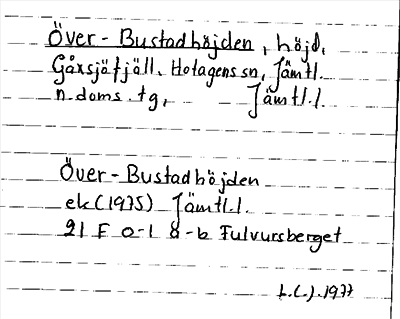 Över-Bustadhöjden, höjd,
Gåxsjöfjäll, Hotagens sn, Jämtl.
n. doms. tg, Jämtl.l.
Över-Bustadhöjden
ek (1975) Jämtl.l.
21 F 0-1 8-b Fulvursberget
1977